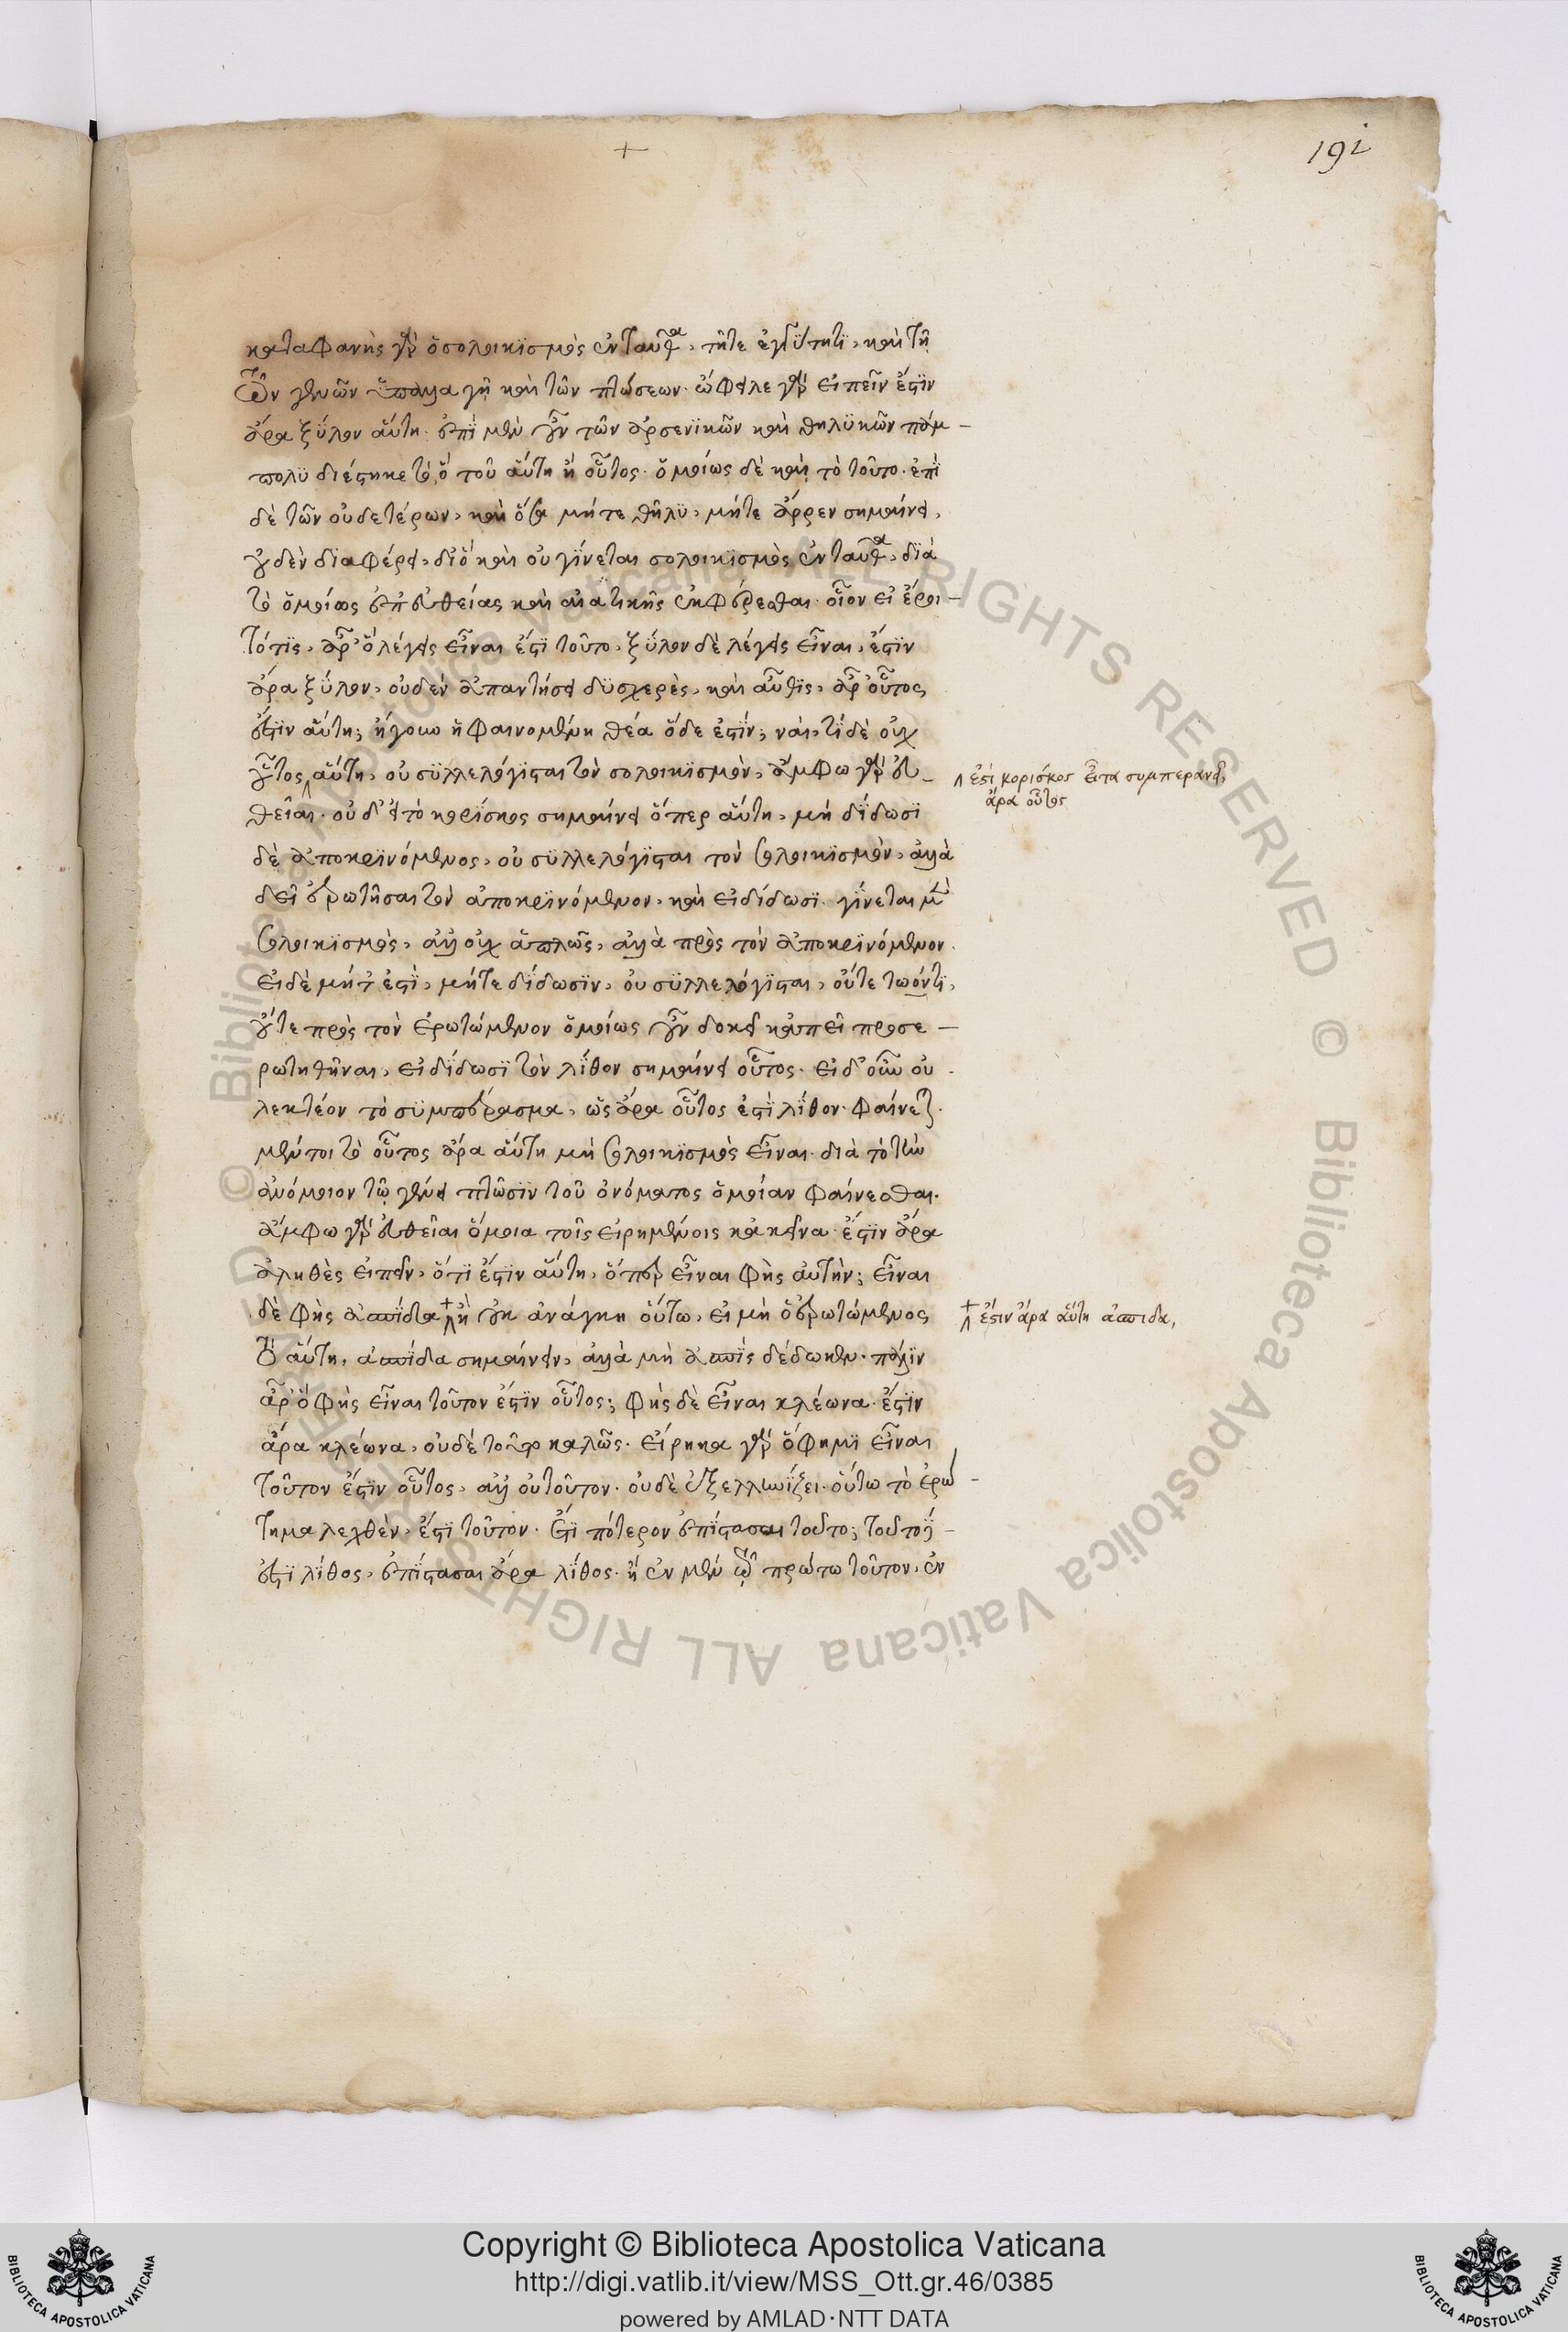 192
καταφανὴς γὰρ ὁ σολοικισμὸς ἐνταῦθα, τῆ τε ἐγγύτητι, καὶ τῆ
τῶν γενῶν ὑπαλλαγῆ καὶ τῶν πτώσεων. ὤφειλε γὰρ εἰπεῖν ἔστιν
ἄρα ξύλον αὕτη. ἐπὶ μὲν οὖν τῶν ἀρσενικῶν καὶ θηλυκῶν πάμ-
πολυ διέστηκε τό, ὅ τοῦ αὕτη ἢ οὗτος. ὁμοίως δὲ καὶ τὸ τοῦτο. ἐπὶ
δὲ τῶν οὐδετέρων, καὶ ὅσα μήτε θῆλυ, μήτε ἄρρεν σημαίνει,
οὐδὲν διαφέρει, διὸ καὶ οὐ γίνεται σολοικισμὸς ἐνταῦθα, διὰ
τὸ ὁμοίως ἐπ' εὐθείας καὶ αἰτιατικῆς ἐκφέρεσθαι. οἷον εἰ ἔροι-
τό τις, ἆρ' ὃ λέγεις εἶναι ἐστὶ τοῦτο, ξύλον δὲ λέγεις εἶναι, ἔστιν
ἄρα ξύλον, οὐδὲν ἀπαντήσει δυσχερὲς, καὶ αὖθις, ἆρ' οὗτος
ἐστὶν αὕτη; ἤγουν ἡ φαινομένη θέα ὅδε ἐστίν; ναί, τί δὲ οὐχ
οὗτος αὕτη, οὐ συλλελόγισται τὸν σολοικισμὸν, ἄμφω γὰρ εὐ-
θεῖαι. οὐδ' εἰ τὸ κορίσκος σημαίνει ὅπερ αὕτη, μὴ δίδωσι
δὲ ἀποκρινόμενος, οὐ συλλελόγισται τὸν σολοικισμὸν, ἀλλὰ
δεῖ ἐρωτῆσαι τὸν ἀποκρινόμενον. καὶ εἰ δίδωσι. γίνεται μὲν
σολοικισμὸς, ἀλλ' οὐχ ἁπλῶς, ἀλλὰ πρὸς τὸν ἀποκρινόμενον.
εἰ δὲ μήτ' ἐστὶ, μήτε δίδωσιν, οὐ συλλελόγισται, οὔτε τῶ ὄντι,
οὔτε πρὸς τὸν ἐρωτώμενον ὁμοίως οὖν δοκεῖ κἀπεῖ προσε-
ρωτηθῆναι, εἰ δίδωσι τὸν λίθον σημαίνει οὗτος. εἰ δ' οὖν οὐ
λεκτέον τὸ συμπέρασμα, ὡς ἄρα οὗτος ἐστὶ λίθον. φαίνεται
μέντοι τὸ οὗτος ἄρα αὕτη μὴ σολοικισμὸς εἶναι. διὰ τὸ τὴν
ἀνόμοιον τῷ γένει πτῶσιν τοῦ ὀνόματος ὁμοίαν φαίνεσθαι.
ἄμφω γὰρ εὐθεῖαι ὅμοια τοῖς εἰρημένοις κἀκεῖνα. ἔστιν ἄρα
ἀληθὲς εἰπεῖν, ὅτι ἔστιν αὕτη, ὅπερ εἶναι φὴς αὐτήν; εἶναι
δὲ φὴς ἀσπίδα ἢ οὐκ ἀνάγκη οὕτω, εἰ μὴ ὁ ἐρωτώμενος
τὸ αὕτη, ἀσπίδα σημαίνειν, ἀλλὰ μὴ ἀσπὶς δέδωκεν. πάλιν
ἆρ' ὃ φὴς εἶναι τοῦτον ἔστιν οὗτος; φὴς δὲ εἶναι κλέωνα. ἔστιν
ἄρα κλέωνα, οὐδὲ τοῦτο καλῶς. εἴρηκα γὰρ ὅ φημι εἶναι
τοῦτον ἔστιν οὗτος, ἀλλ' οὐ τοῦτον. οὐδὲ ἐξελληνίζει. οὕτω τὸ ἐρώ-
τημα λεχθὲν, ἐστὶ τοῦτον. ἔτι πότερον ἐπίστασαι τοῦτο; τοῦτο γ-
ἐστὶ λίθος, ἐπίστασαι ἄρα λίθος. ἢ ἐν μὲν τῷ πρώτω τοῦτον, ἐν
ἐστὶ κορίσκος εἶτα συμπερανεῖ,
ἄρα οὗτος
ἔστιν ἄρα αὕτη ἀσπίδα,
© Biblioteca Apostolica Vaticana ALL RIGHTS RESERVED © Biblioteca Apostolica Vaticana ALL RIGHTS RESERVED
Copyright © Biblioteca Apostolica Vaticana
http://digi.vatlib.it/view/MSS_Ott.gr.46/0385
powered by AMLAD·NTT DATA
BIBLIOTECA APOSTOLICA VATICANA
BIBLIOTECA APOSTOLICA VATICANA